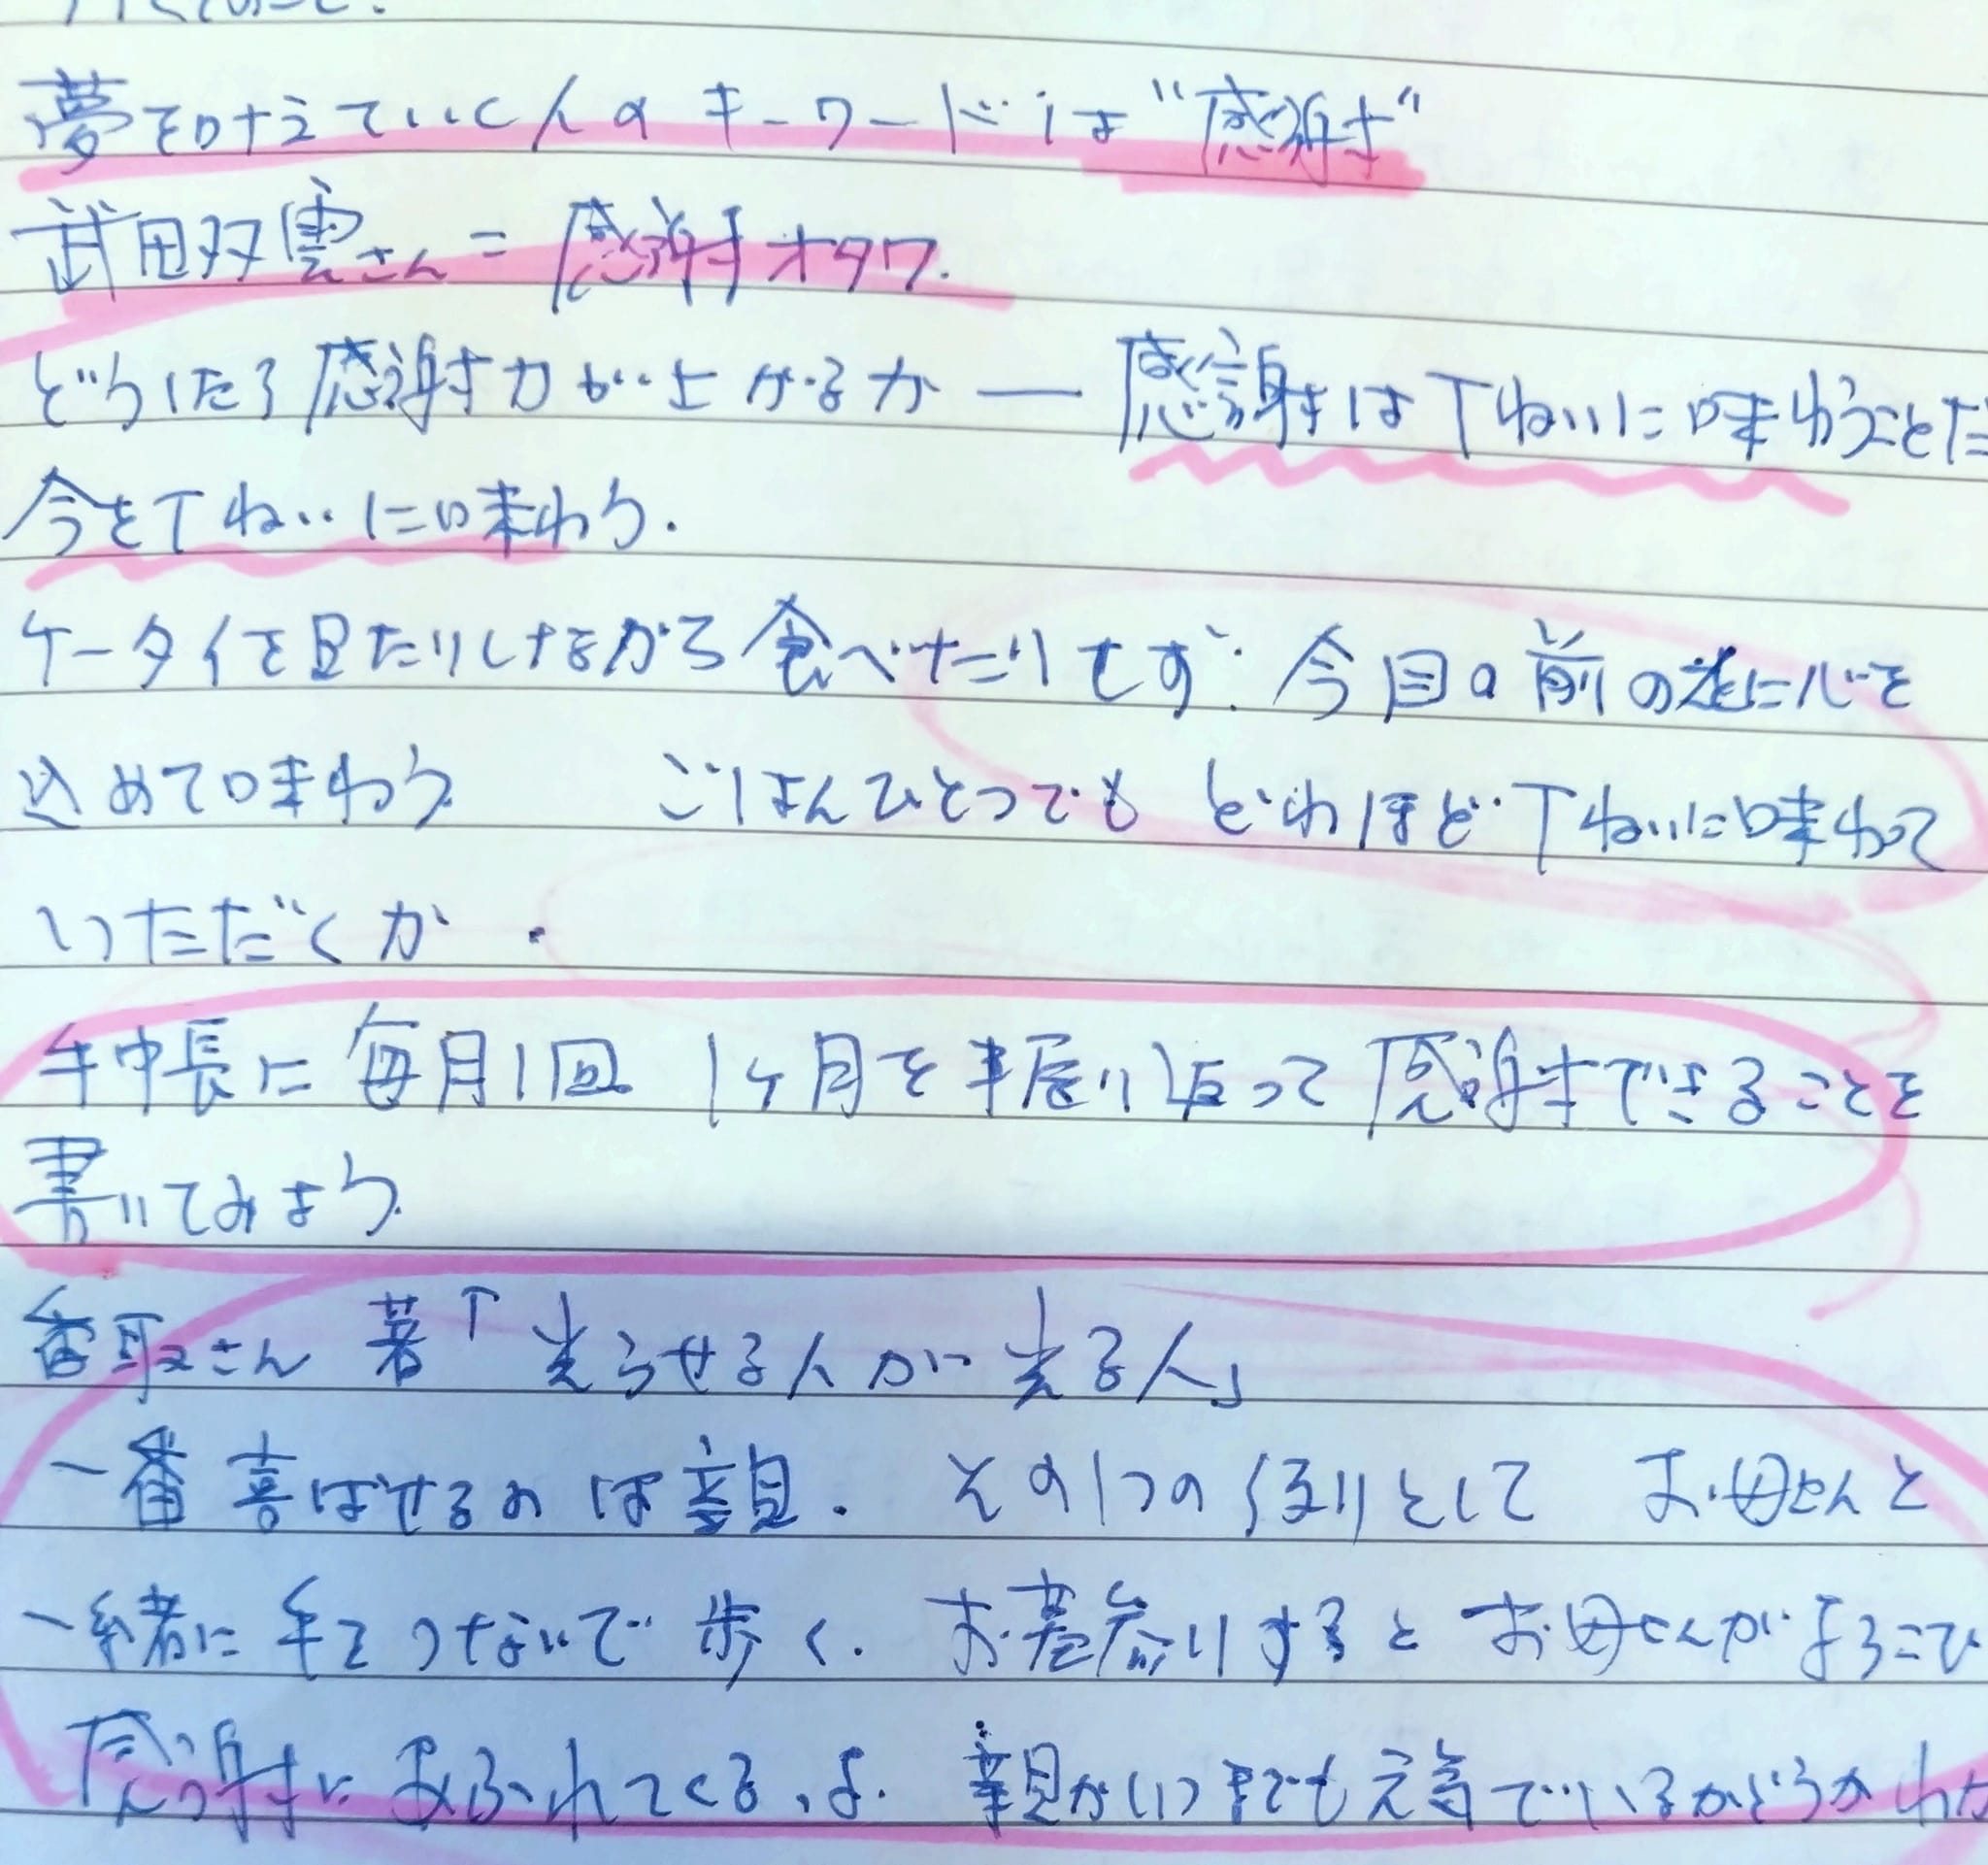 夢を叶えていく人のキーワードは“感謝”
武田双雲さん=感謝オタク.
どうしたら感謝力が上がるか — 感謝は丁ねいに味わうことだ
今を丁ねいに味わう.
ケータイを見たりしながら食べたりせず. 今目の前の
心を
込めて味わう ごはんひとつでも どれほど丁ねいに味わって
いただくか.
手帳に毎月1回 1ヶ月を振り返って感謝できることを
書いてみよう
香取さん 著「光らせる人が光る人」
一番喜ばせるのは親. その1つの例として お母さんと
一緒に手をつないで歩く. お墓参りするとお母さんがよろこび
感謝にあふれてくるよ. 親がいつまでも元気でいるかどうかわか